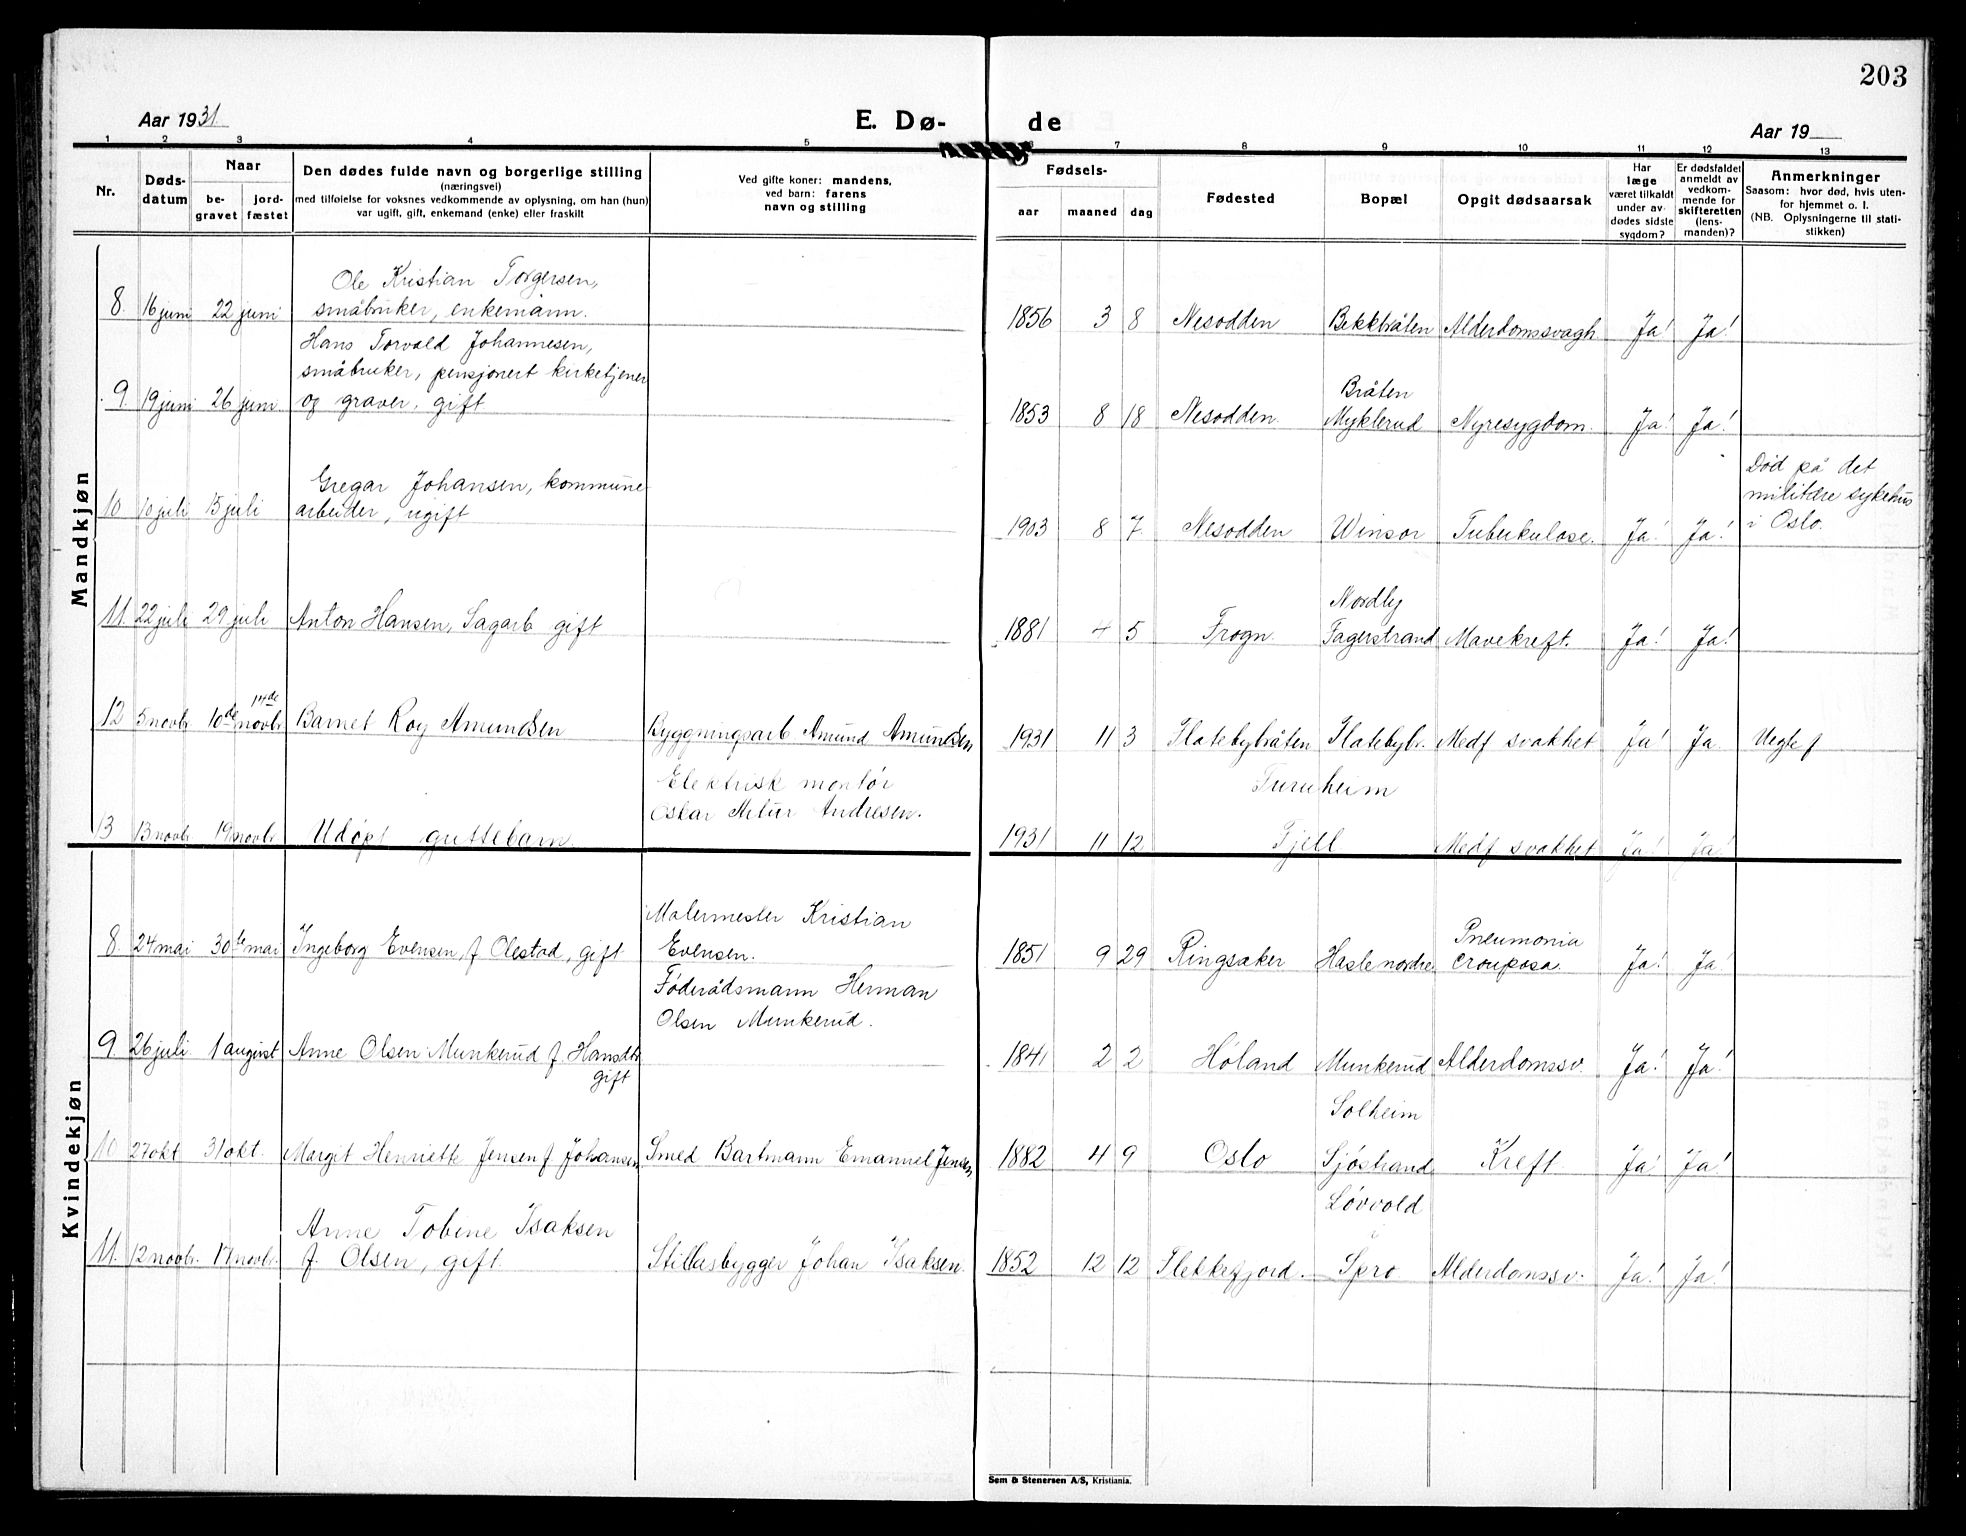 203
Aar 1931
E. Dø-
de
Aar 19
1 2 3 4 5 7 8 9 10 11 12 13
Nr.
Døds-
datum
Naar
be-
gravet
jord-
fæstet
Den dødes fulde navn og borgerlige stilling
(næringsvei)
med tilføielse for voksnes vedkommende av oplysning, om han (hun)
var ugift, gift, enkemand (enke) eller fraskilt
Ved gifte koner: mandens,
ved barn: farens
navn og stilling
Fødsels-
aar maaned dag
Fødested
Bopæl
Opgit dødsaarsak
Har
læge
været tilkaldt
under av-
dødes sidste
sygdom?
Er dødsfaldet
anmeldt av
vedkom-
mende for
skifteretten
(lens-
manden)?
Anmerkninger
Saasom: hvor død, hvis uten-
for hjemmet o. l.
(NB. Oplysningerne til stati-
stikken)
Mandkjøn
Ole Kristian Torgersen,
8. 16 juni 22 juni småbruker, enkemann. 1856 3 8 Nesodden Bekkbråten Alderdomssvagh. Ja! Ja!
Hans Torvald Johannesen,
småbruker, pensjonert kirketjener
Bråten
9. 19 juni 26 juni og graver, gift 1853 8 18 Nesodden. Myklerud Nyresygdom. Ja! Ja!
Død på det
Gregar Johansen, kommune
militære sykehus
10 10 juli 15 juli arbeider, ugift 1903 8 7. Nesodden Winsor Tuberkulose. Ja! Ja! i Oslo.
Nordby
11. 22 juli 29 juli Anton Hansen, Sagarb. gift 1881 4 5 Frogn. Fagerstrand Mavekreft. Ja! Ja!
14de
12 5 novbr. 10de novbr. Barnet Roy Amundsen Byggningsarb Amund Amundsen 1931 11 3 Flatebybråten Flatebybr. Medf svakhet Ja! Ja. Uegte f
Elektrisk montør
Furuheim
Oskar Artur Andresen.
13 13 novbr. 19 novbr. Udøpt guttebarn. 1931 11 12 Fjell Medf svakhet Ja! Ja!
Kvindekjøn
Malermester Kristian
Pneumonia
8. 24 mai 30te mai Ingeborg Evensen, f Olestad, gift Evensen. 1851 9 29 Ringsaker Hasle nordre. crouposa. Ja! Ja!
Føderådsmann Herman
Olsen Munkerud.
9. 26 juli. 1 august Anne Olsen Munkerud f. Hansdtr 1841 2 2 Høland Munkerud Alderdomssv. Ja! Ja!
gift
Solheim
10 27 okt 31 okt. Margit Henriette Jensen f Johansen Smed Bartmann Emanuel Jensen 1882 4 9 Oslo Sjøstrand Kreft Ja! Ja!
Løvvold
Anne Tobine Isaksen
i
11. 12 novbr. 17 novbr. f. Olsen, gift. Stillasbygger Johan Isaksen. 1852 12 12 Flekkefjord. Spro Alderdomssv. Ja! Ja!
Sem & Stenersen A/S, Kristiania.